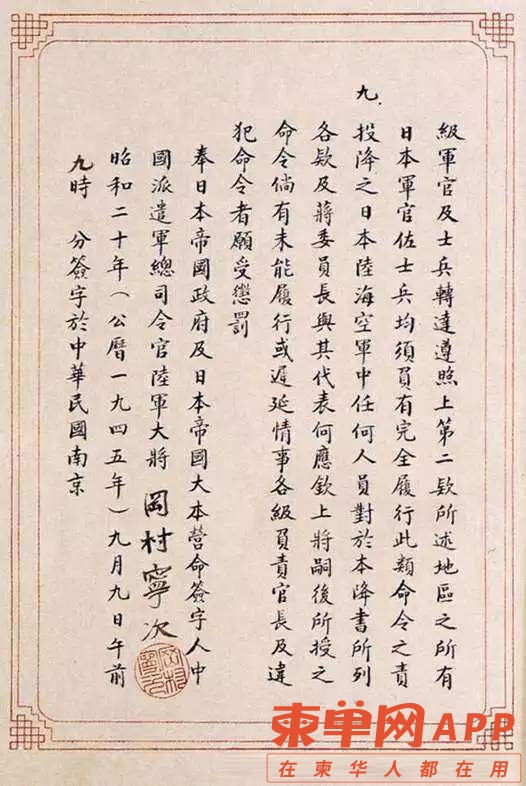 級軍官及士兵轉達遵照上第二欵所述地區之所有
日本軍官佐士兵均須負有完全履行此類命令之責
九.
投降之日本陸海空軍中任何人員對於本降書所列
各欵及蔣委員長與其代表何應欽上將嗣後所授之
命令倘有未能履行或遲延情事各級負責官長及違
犯命令者願受懲罰
奉日本帝國政府及日本帝國大本營命簽字人中
國派遣軍總司令官陸軍大將 岡村寧次
昭和二十年(公曆一九四五年)九月九日午前
九時 分簽字於中華民國南京
岡村寧次
柬单网APP
在柬华人都在用